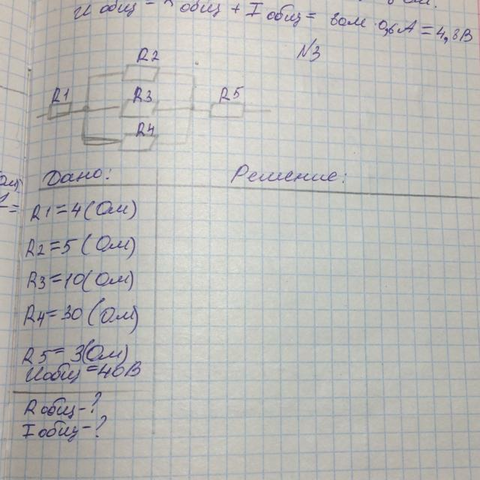 U общ = R общ + I общ = 8 Ом · 0,6 А = 4,8 В
N3
R2
R1 R3 R5
R4
Дано: Решение:
R1=4(Ом)
R2=5(Ом)
R3=10(Ом)
R4=30(Ом)
R5=3(Ом)
Uобщ=40В
Rобщ-?
Iобщ-?